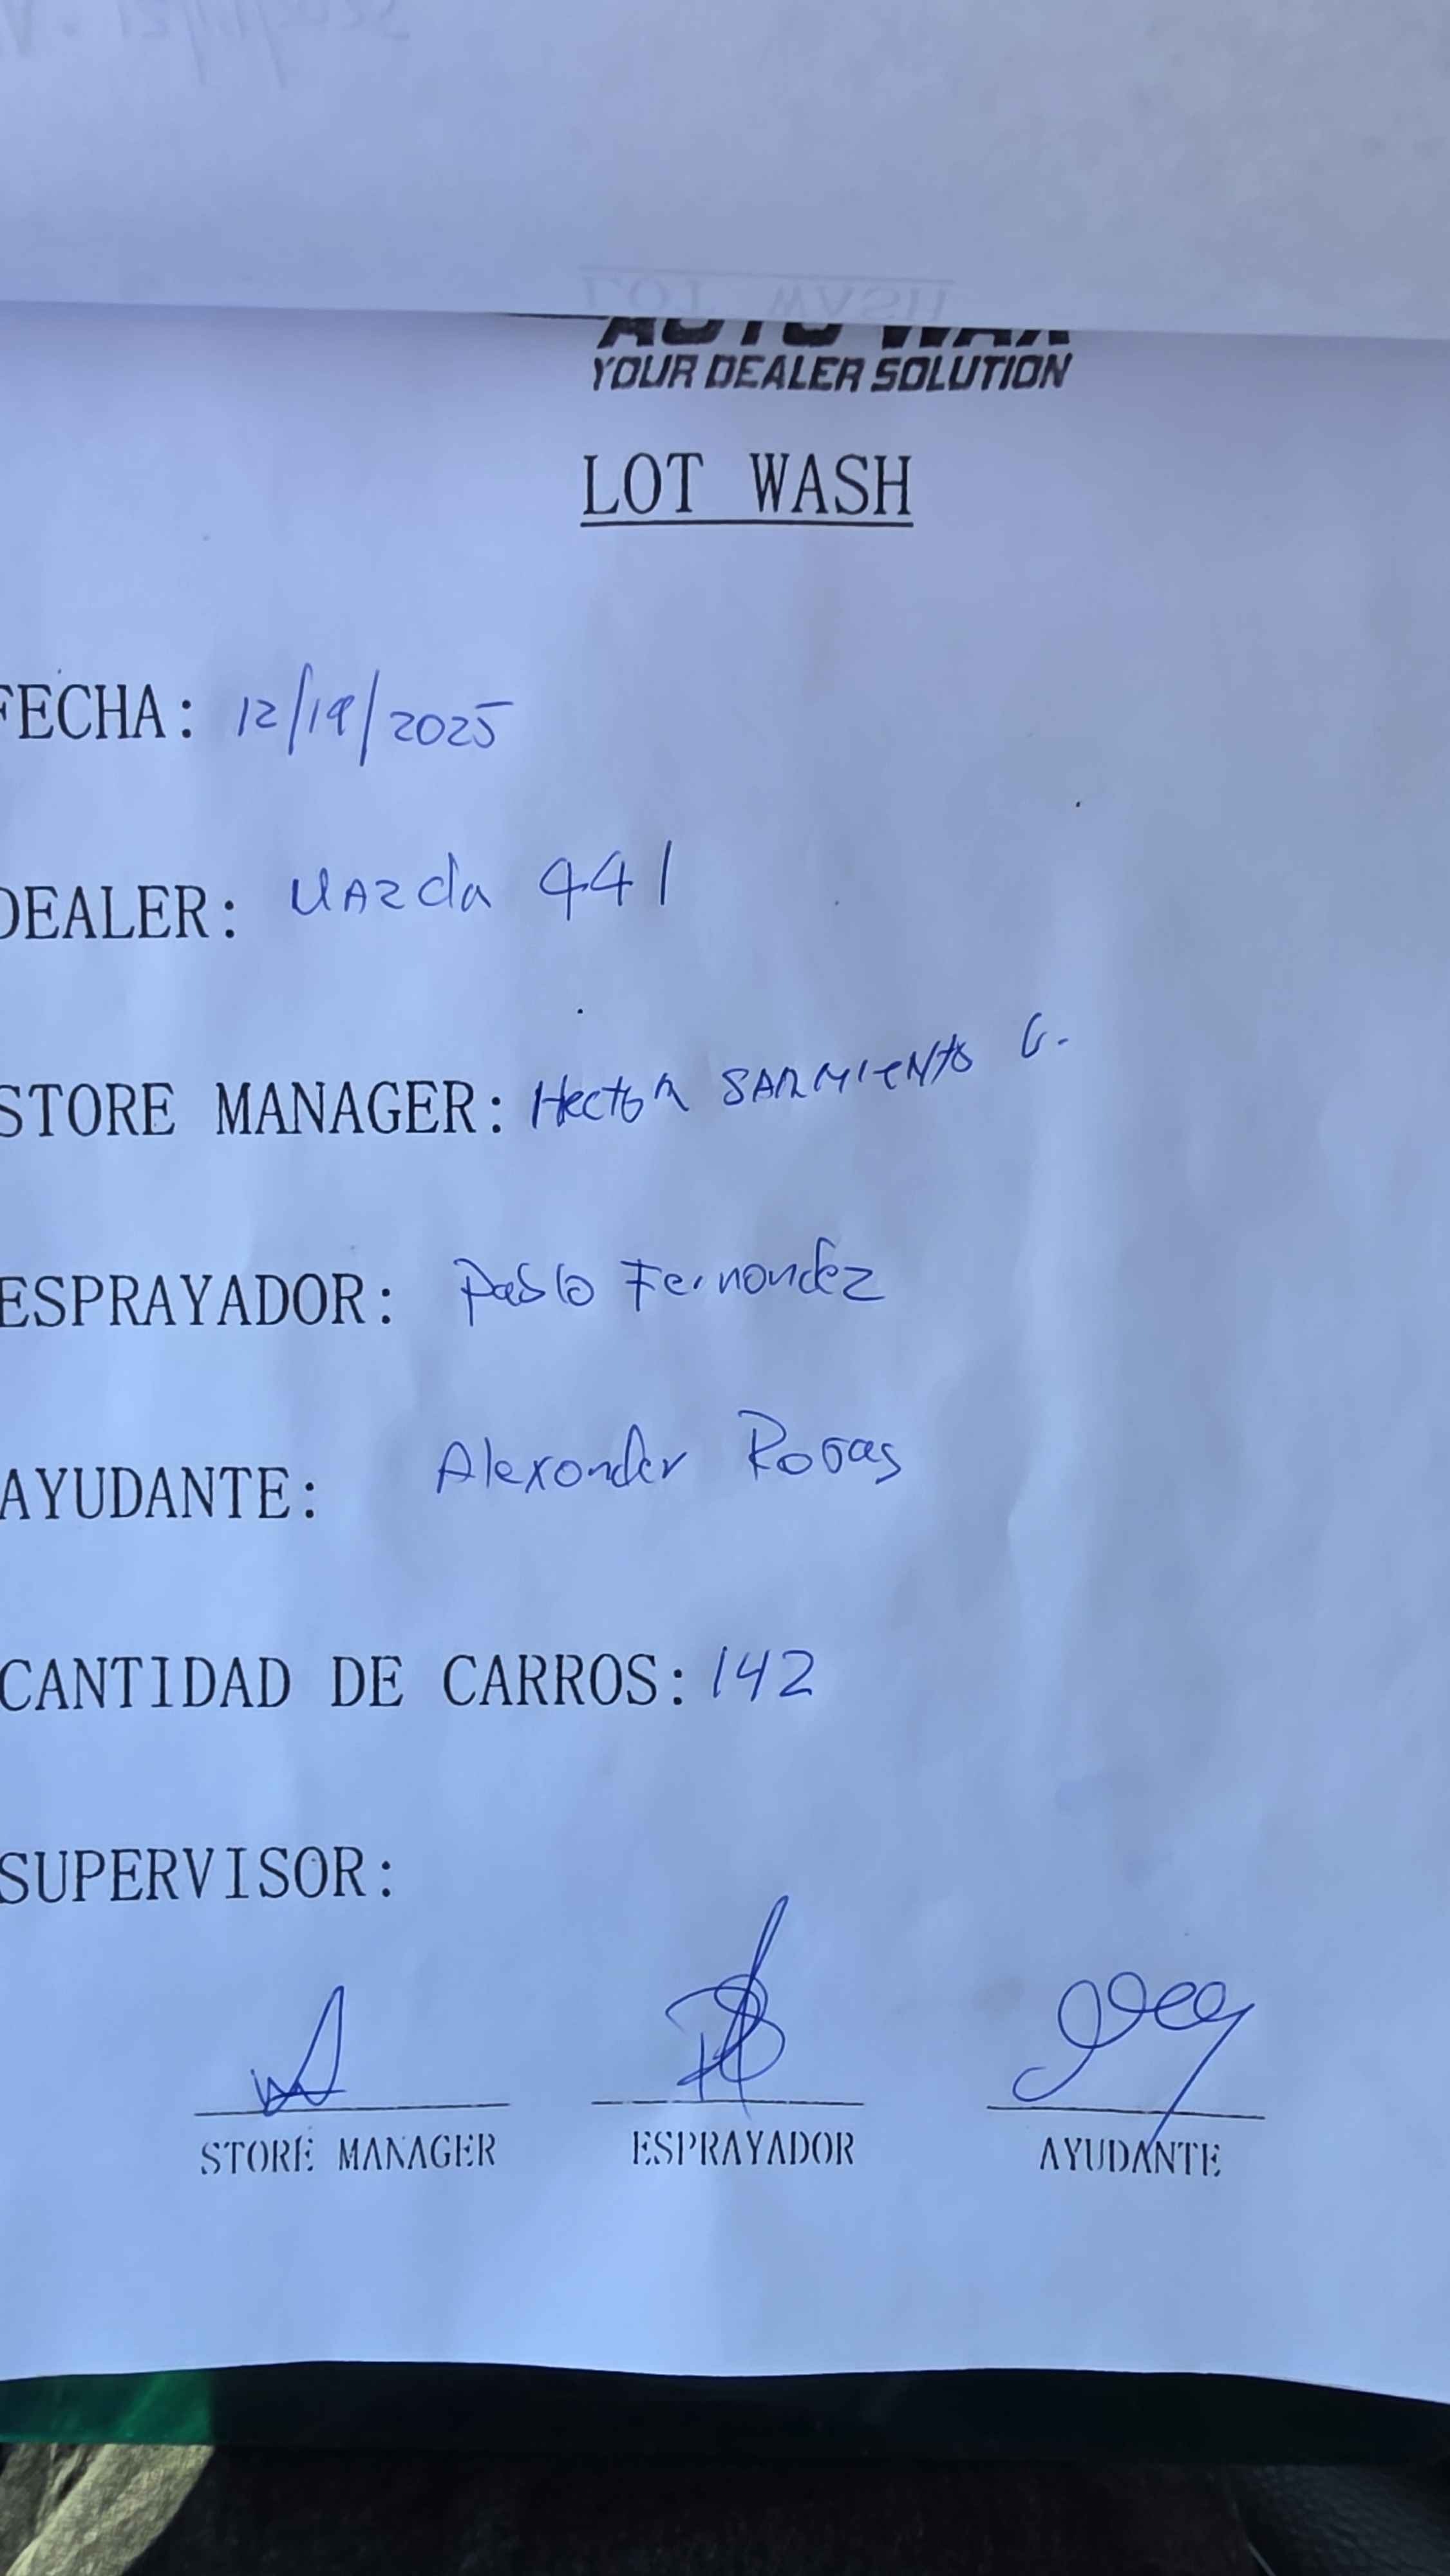 AUTO WAX
YOUR DEALER SOLUTION
LOT WASH
FECHA: 12/19/2025
DEALER: Mazda 441
STORE MANAGER: Hector SARMIENTO G.
ESPRAYADOR: Pablo Fernandez
AYUDANTE: Alexander Rojas
CANTIDAD DE CARROS: 142
SUPERVISOR:
STORE MANAGER ESPRAYADOR AYUDANTE